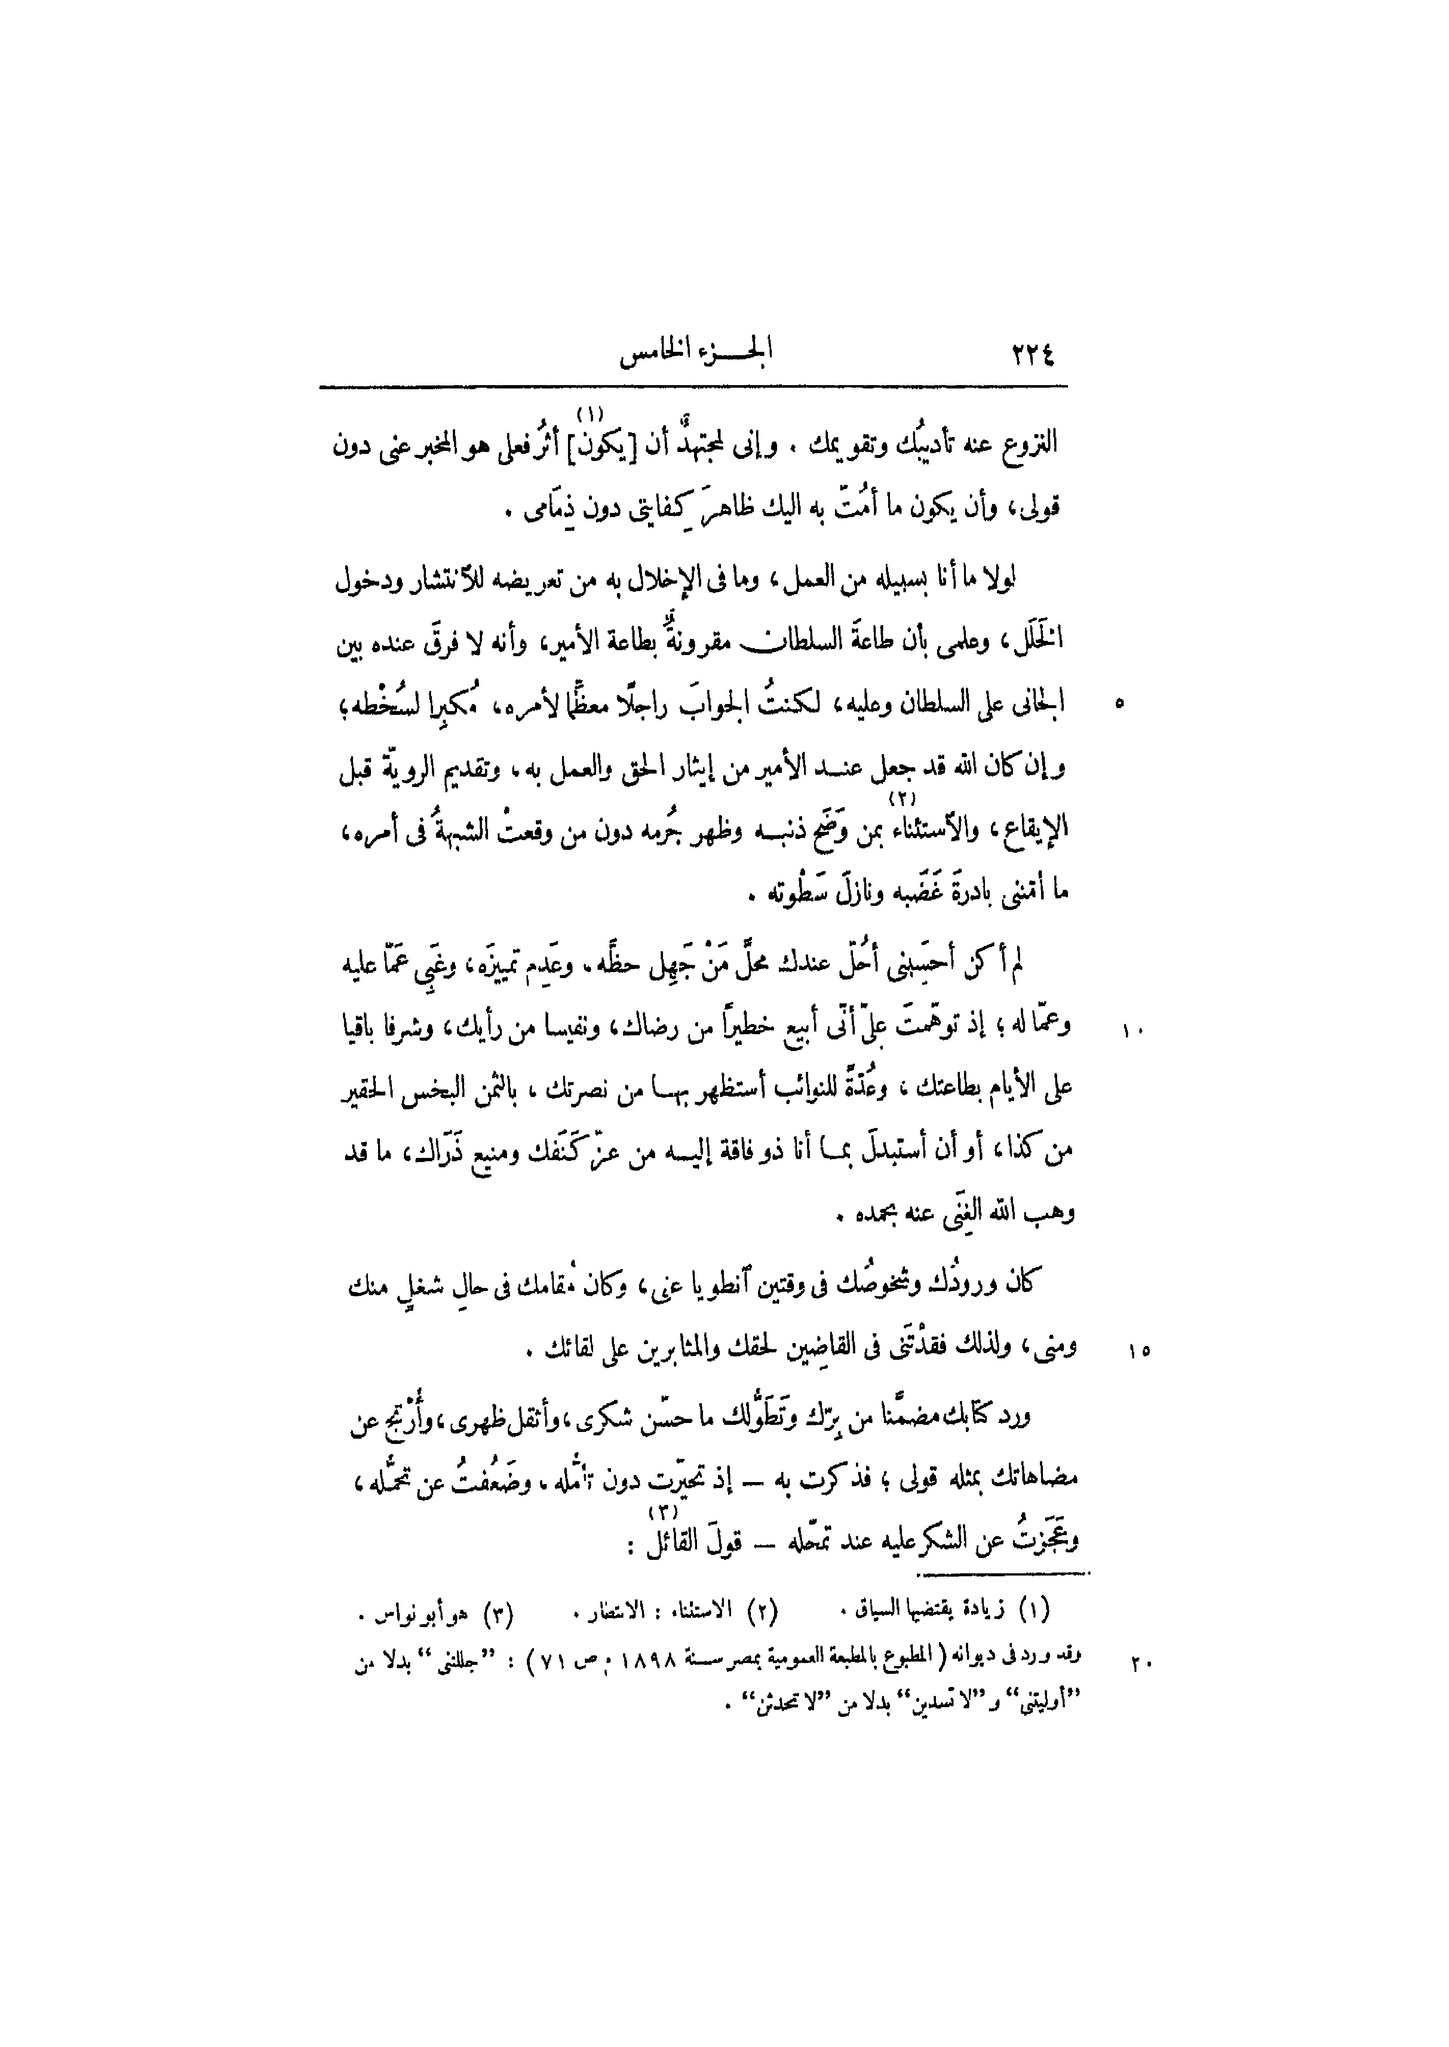 ٢٢٤ الجـزء الخامس
النزوع عنه تأديبُك وتقويمك . وإنى لمجتهدٌ أن [يكون](١) أثرُ فعلى هو المخبر عنى دون
قولى، وأن يكون ما أمُتّ به اليك ظاهرَ كِفايتى دون ذِمَامى .
لولا ما أنا بسبيله من العمل، وما فى الإخلال به من تعريضه للٱنتشار ودخول
الخَلَل، وعلمى بأن طاعةَ السلطان مقرونةٌ بطاعة الأمير، وأنه لا فرقَ عنده بين
الجانى على السلطان وعليه، لكنتُ الجوابَ راجلًا معظِّما لأمره، مُكبِرا لسُخْطه؛ ٥
وإن كان الله قد جعل عنـد الأمير من إيثار الحق والعمل به، وتقديم الرويّة قبل
الإيقاع، والٱستئناء(٢) بمن وَضَح ذنبـه وظهر جُرمه دون من وقعتْ الشبهةُ فى أمره،
ما أمّننى بادرةَ غَضَبه ونازلَ سَطْوته .
لم أكن أحسَِبنى أحُلّ عندك محلَّ مَنْ جَهِل حظَّه، وعَدِم تمييزَه، وغَبِى عَمّا عليه
وعمّا له؛ إذ توهّمتَ علىّ أنّى أبيع خطيرًا من رضاك، ونفيسا من رأيك، وشرفا باقيا ١٠
على الأيام بطاعتك، وعُدّةً للنوائب أستظهر بهـا من نصرتك، بالثمن البخس الحقير
من كذا، أو أن أستبدلَ بمـا أنا ذو فاقة إليـه من عزّ كَنَفك ومنيع ذَرَاك، ما قد
وهب الله الغِنَى عنه بحمده .
كان ورودُك وشخوصُك فى وقتين ٱنطويا عنى، وكان مُقامك فى حالِ شغلٍ منك
ومنى، ولذلك فقدْتَنى فى القاضِين لحقك والمثابرين على لقائك . ١٥
ورد كتابك مضمَّنا من بِرّك وتَطَوُّلك ما حسّن شكرى، وأثقل ظهرى، وأُرْتج عن
مضاهاتك بمثله قولى؛ فذكرت به — إذ تحيّرت دون تأمُّله، وضَعُفتُ عن تحمُّله،
وعَجَزتُ عن الشكر عليه عند تمحّله — قولَ القائل(٣) :
(١) زيادة يقتضيها السياق . (٢) الاستئناء : الانتظار . (٣) هو أبو نواس .
وقد ورد فى ديوانه (المطبوع بالمطبعة العمومية بمصر سـنة ١٨٩٨ م ص ٧١) : ”جللتنى“ بدلا من ٢٠
”أوليتنى“ و ”لا تسدين“ بدلا من ”لا تحدثن“ .